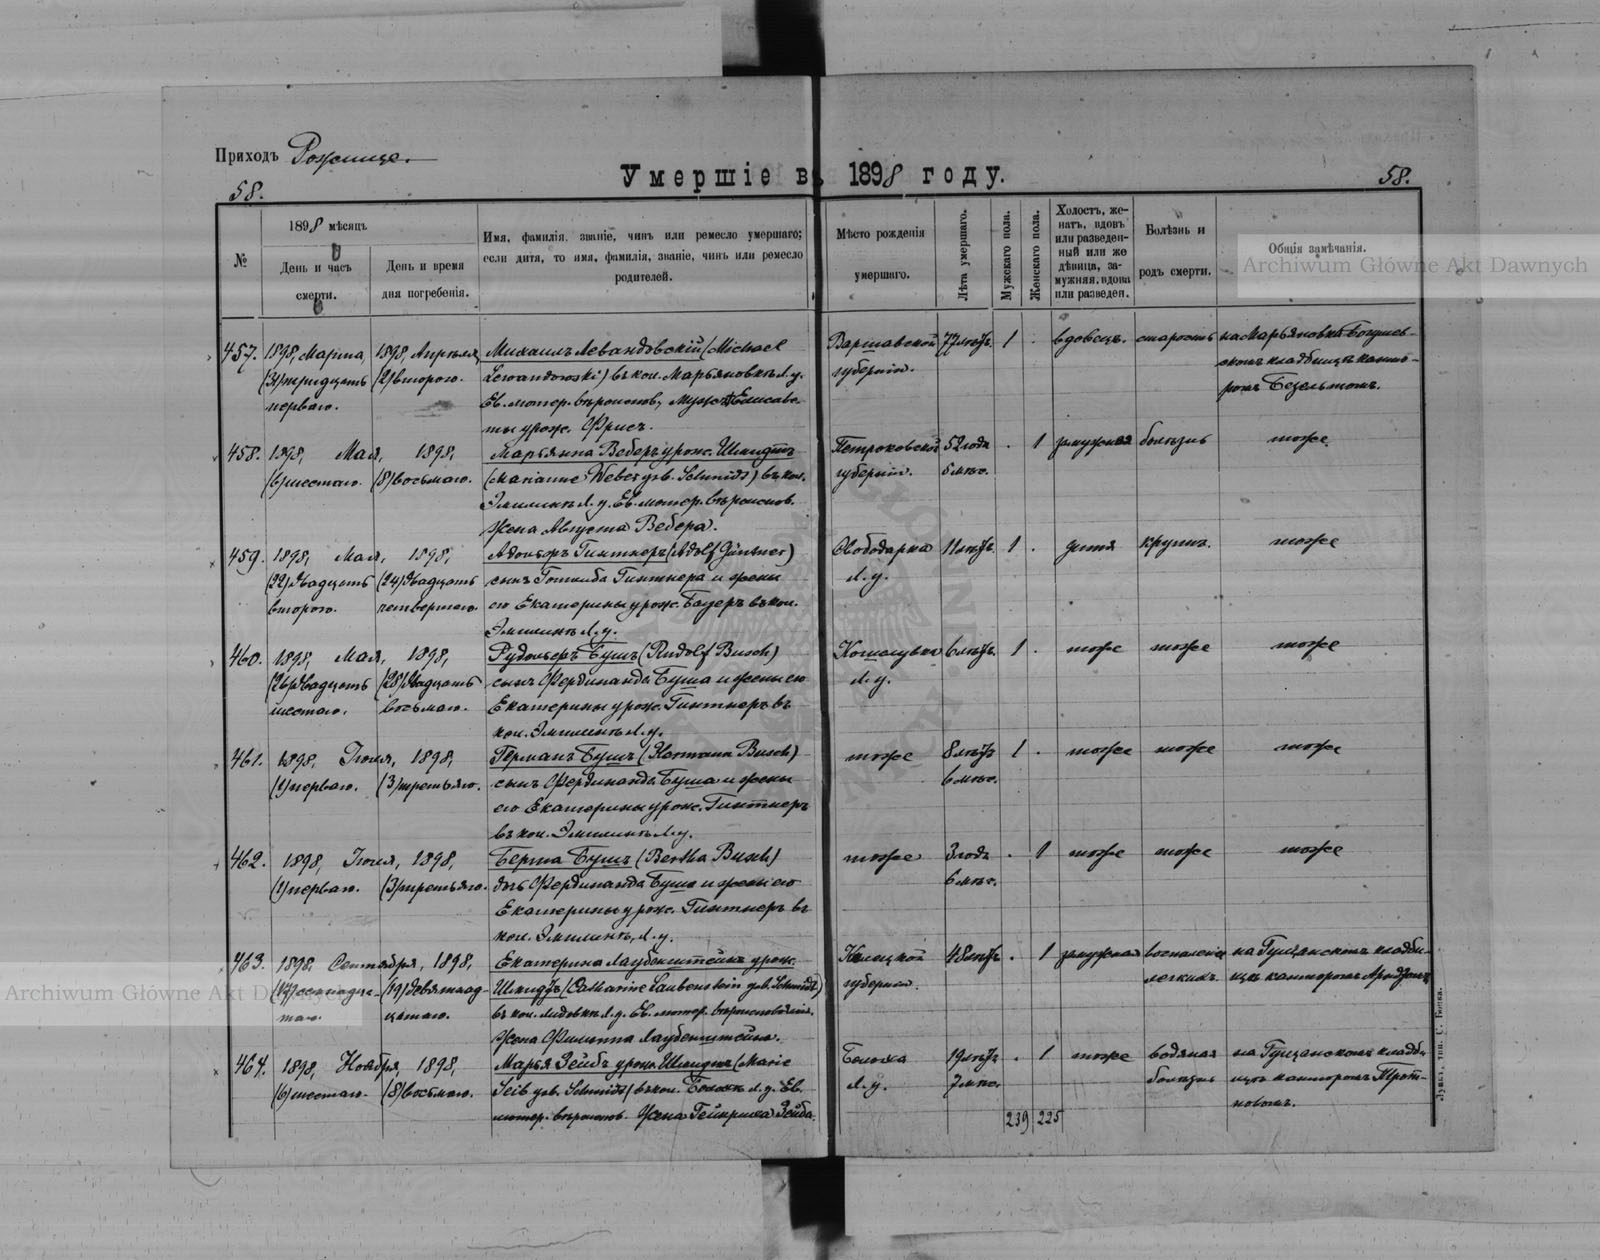 Приходъ Рожище.
Умершіе въ 1898 году.
58.
58.
№
1898 мѣсяцъ
День и часъ
смерти.
День и время
дня погребенія.
Имя, фамилія, званіе, чинъ или ремесло умершаго;
если дитя, то имя, фамилія, званіе, чинъ или ремесло
родителей.
Мѣсто рожденія
умершаго.
Лѣта умершаго.
Мужскаго пола.
Женскаго пола.
Холостъ, же-
натъ, вдовъ
или разведен-
ный или же
дѣвица, за-
мужняя, вдова
или разведен.
Болѣзнь и
родъ смерти.
Общія замѣчанія.
Archiwum Główne Akt Dawnych
457. 1898, Марта, 1898, Апрѣля, Михаилъ Левандовскій (Michael Варшавской 77 лѣтъ. 1 . вдовецъ. старость на Марьяновка-Богушев-
(31) тридцать (2) второго. Lewandowski) въ кол. Марьяновкѣ Л. у. губерніи. скомъ кладбищѣ канто-
перваго. Ев. лютер. вѣроисповѣ, мужъ Елисаве- ромъ Безельтомъ.
ты урож. Фрисъ.
458. 1898, Мая, 1898, Марьянна Веберъ урож. Шмидтъ Петроковской 52 года . 1 замужняя болѣзнь тоже
(6) шестаго. (8) восьмаго. (Marianne Weber geb. Schmidt) въ кол. губерніи. 6 мѣс.
Эмилинѣ Л. у. Ев. лютер. вѣроисповѣ.
Жена Августа Вебера.
459. 1898, Мая, 1898, Адольфъ Гинтнеръ (Adolf Güntner) Свободарка 11 лѣтъ 1 . дитя крупъ. тоже
(22) двадцать (24) двадцать сынъ Готлиба Гинтнера и жены Л. у.
второго. четвертаго. его Екатерины урож. Бауеръ въ кол.
Эмилинѣ Л. у.
460. 1898, Мая, 1898, Рудольфъ Бушъ (Rudolf Busch) 6 лѣтъ 1 . тоже тоже тоже
(26) двадцать (28) двадцать сынъ Фердинанда Буша и жены его Л. у.
шестаго. восьмаго. Екатерины урож. Гинтнеръ въ
кол. Эмилинѣ Л. у.
461. 1898, Іюня, 1898, Германъ Бушъ (Hermann Busch) тоже 8 лѣтъ 1 . тоже тоже тоже
(1) перваго. (3) третьяго. сынъ Фердинанда Буша и жены 6 мѣс.
его Екатерины урож. Гинтнеръ
въ кол. Эмилинѣ Л. у.
462. 1898, Іюня, 1898, Берта Бушъ (Bertha Busch) тоже 3 года . 1 тоже тоже тоже
(1) перваго. (3) третьяго. дочь Фердинанда Буша и жены его 6 мѣс.
Екатерины урож. Гинтнеръ въ
кол. Эмилинѣ, Л. у.
463. 1898, Сентября, 1898, Екатерина Лаубенштейнъ урож. Келецкой 48 лѣтъ . 1 замужняя воспаленіе на Гущанскомъ кладби-
(17) семнадца- (19) девятнад- Шмидтъ (Catharine Laubenstein geb. Schmidt) губерніи. легкихъ. щѣ канторомъ
таго. цатаго. въ кол. Лидовкѣ Л. у. Ев. лютер. вѣроисповѣданія.
Жена Филиппа Лаубенштейна.
Archiwum Główne Akt Dawnych
464. 1898, Ноября, 1898, Марья Зейбъ урож. Шмидтъ (Marie Боголка 19 лѣтъ . 1 тоже водяная на Гущанскомъ кладби-
(6) шестаго. (8) восьмаго. Seib geb. Schmidt) въ кол. Л. у. Ев. Л. у. 7 мѣс. болѣзнь щѣ канторомъ
лютер. вѣроисповѣ. Жена Гейнриха Зейба.
239 225
Луцкъ, тип. С. Бонка.